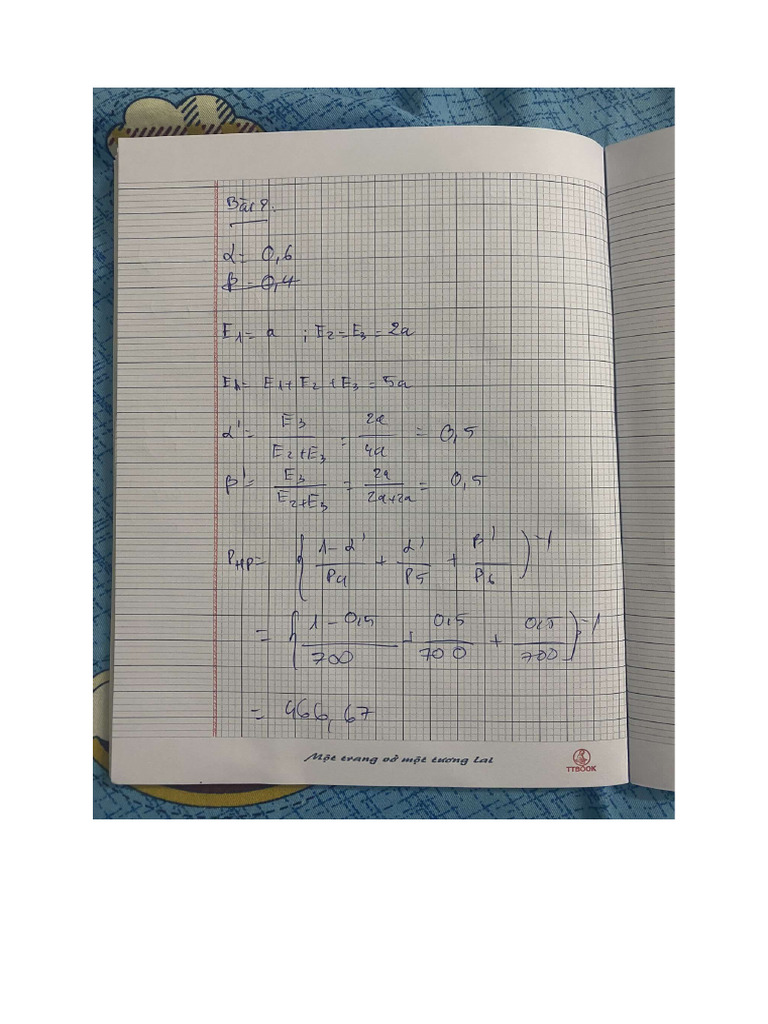 Bài 9.
α = 0,6
β = 0,4
E1 = a ; E2 = E3 = 2a
EΛ = E1 + E2 + E3 = 5a
α' = E3 / (E2 + E3) = 2a / 4a = 0,5
β' = E3 / (E2 + E3) = 2a / (2a + 2a) = 0,5
PHP = { (1 - α') / P4 + α' / P5 + β' / P6 )^-1
= { (1 - 0,5) / 700 + 0,5 / 700 + 0,5 / 700 }^-1
= 466,67
Một trang vở một tương lai
TTBOOK